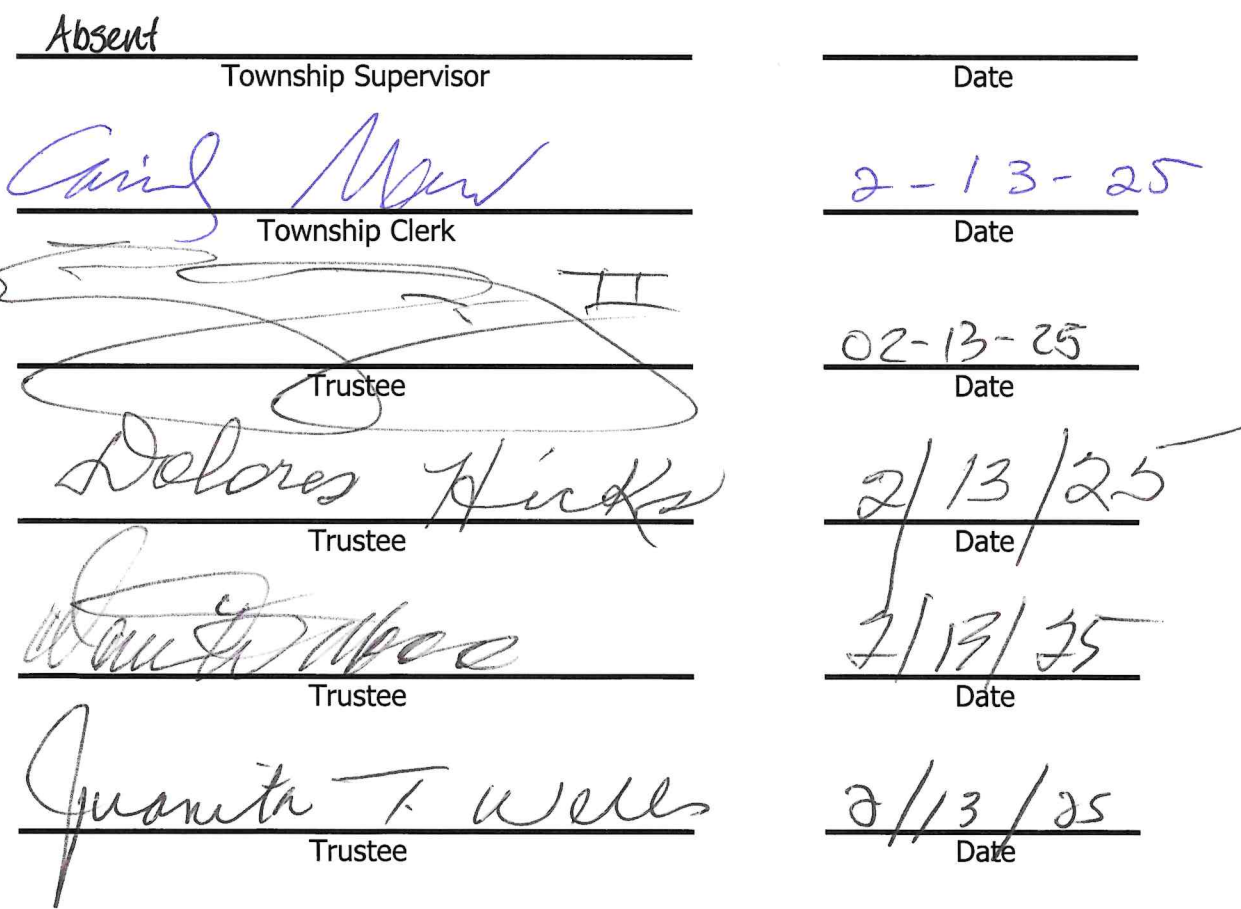 Absent
Township Supervisor Date
2-13-25
Township Clerk Date
II 02-13-25
Trustee Date
Dolores Hicks 2/13/25
Trustee Date
2/13/25
Trustee Date
Juanita T. Wells 2/13/25
Trustee Date